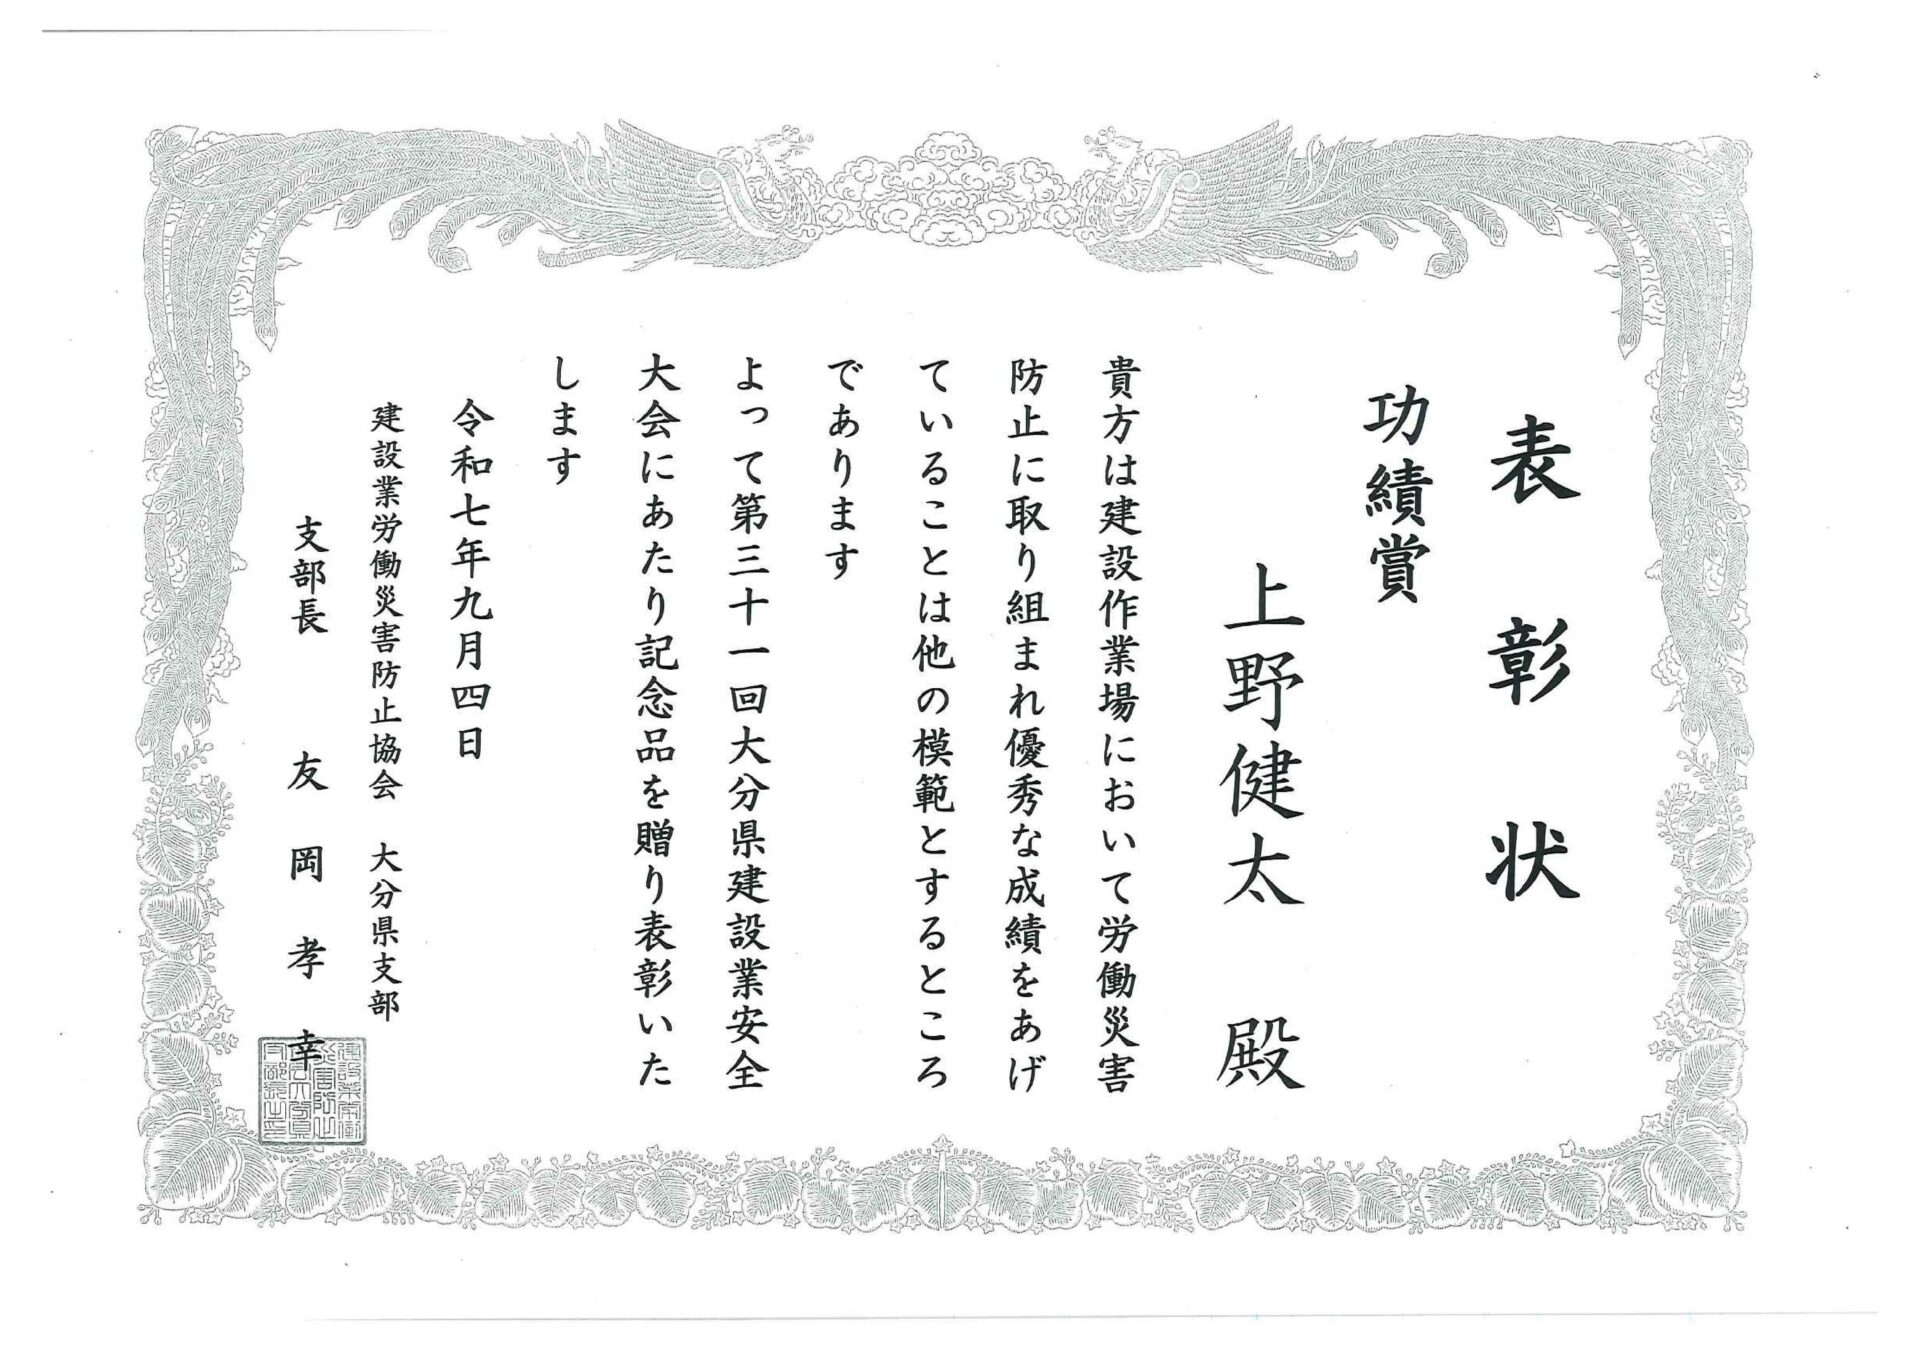 表彰状
功績賞
上野健太 殿
貴方は建設作業場において労働災害
防止に取り組まれ優秀な成績をあげ
ていることは他の模範とするところ
であります
よって第三十一回大分県建設業安全
大会にあたり記念品を贈り表彰いた
します
令和七年九月四日
建設業労働災害防止協会 大分県支部
支部長 友岡孝幸